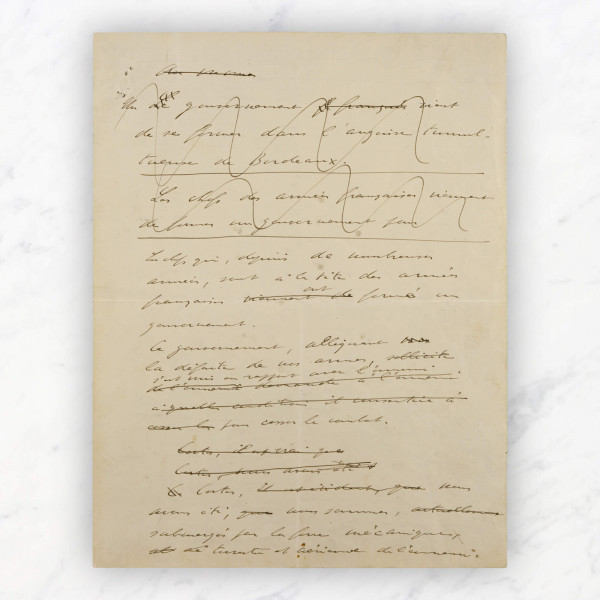 Un gouvernement français vient
de se former dans l'angoisse tumul-
tueuse de Bordeaux.
Les chefs des armées françaises viennent
de former un gouvernement
Les chefs qui, depuis de nombreuses
années, sont à la tête des armées
françaises viennent de ont formé un
gouvernement.
Ce gouvernement, alléguant
la défaite de nos armes, sollicite
s'est mis en rapport avec l'ennemi
de l'ennemi demande à l'ennemi
à quelles conditions il consentira à
pour cesser le combat.
Certes, il est vrai que
Certes, nous avons été
Certes, il est évident, que nous
avons été, que nous sommes, actuellement
submergés par la force mécanique,
de terrestre et aérienne de l'ennemi.